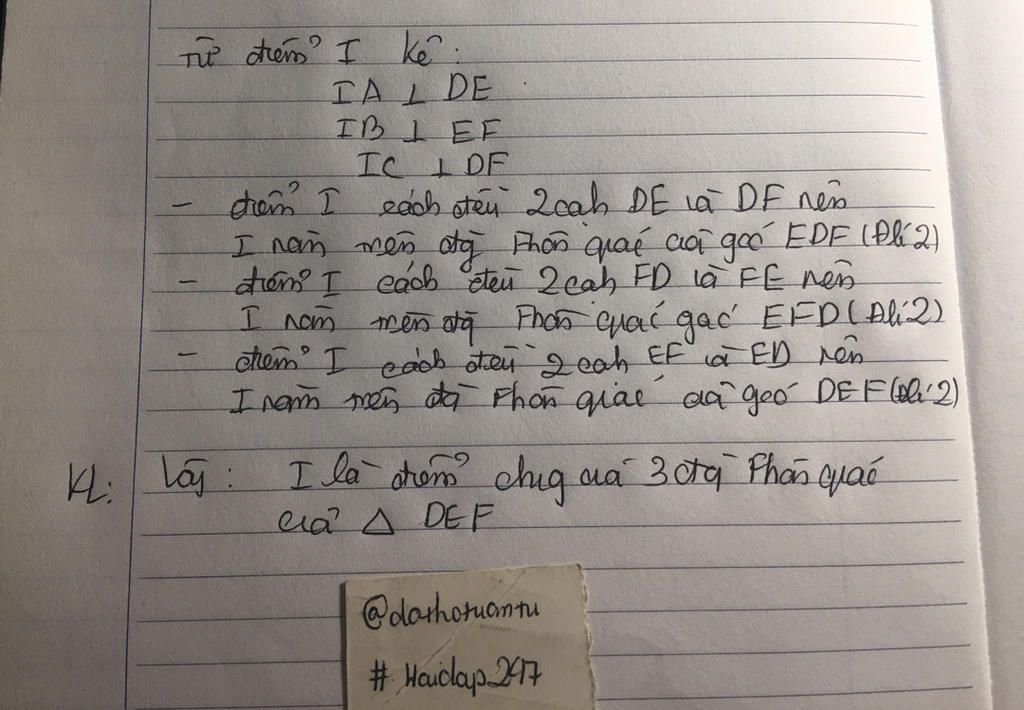 Từ điểm I kẻ:
IA ⊥ DE
IB ⊥ EF
IC ⊥ DF
- điểm I cách đều 2 cạnh DE và DF nên
I nằm trên đg Phân giác của góc EDF (Đlí 2)
- điểm I cách đều 2 cạnh FD và FE nên
I nằm trên đg Phân giác góc EFD (Đlí 2)
- điểm I cách đều 2 cạnh EF và ED nên
I nằm trên đg Phân giác của góc DEF (Đlí 2)
KL: Vậy: I là điểm chug của 3 đg Phân giác
của △ DEF
# Hoidap_247